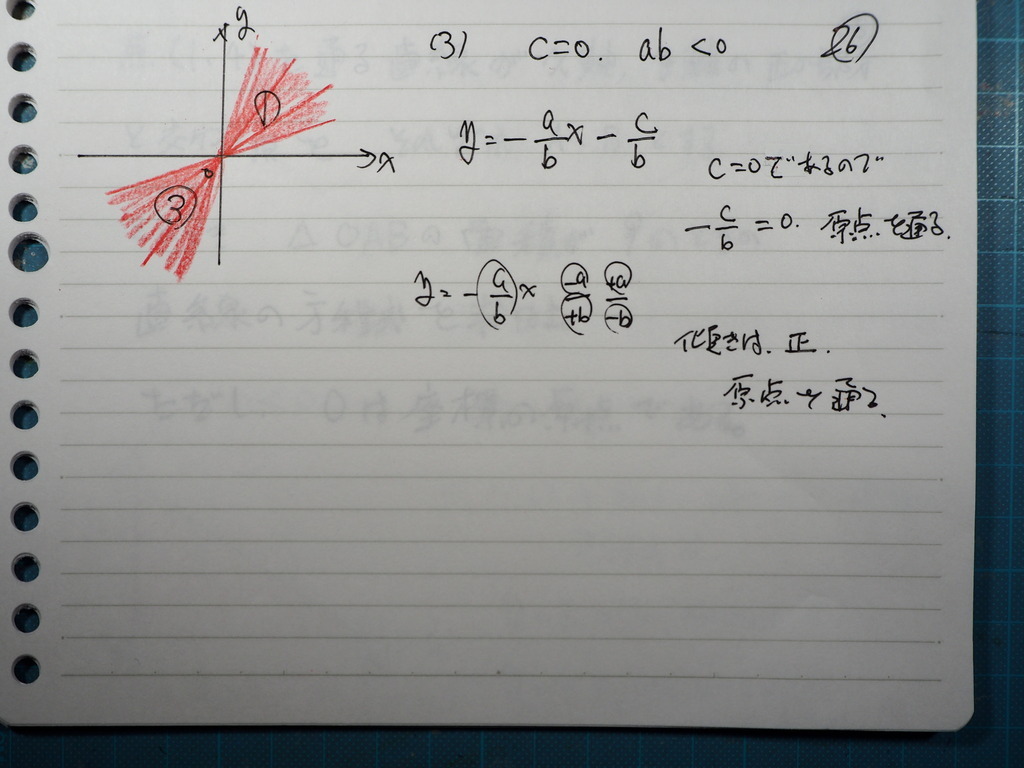 y
x
o
①
③
(3) C=0. ab <0
26
y = - a/b x - c/b
C=0であるので
- c/b = 0. 原点を通る.
y = - a/b x -a/+b +a/-b
傾きは. 正.
原点を通る.